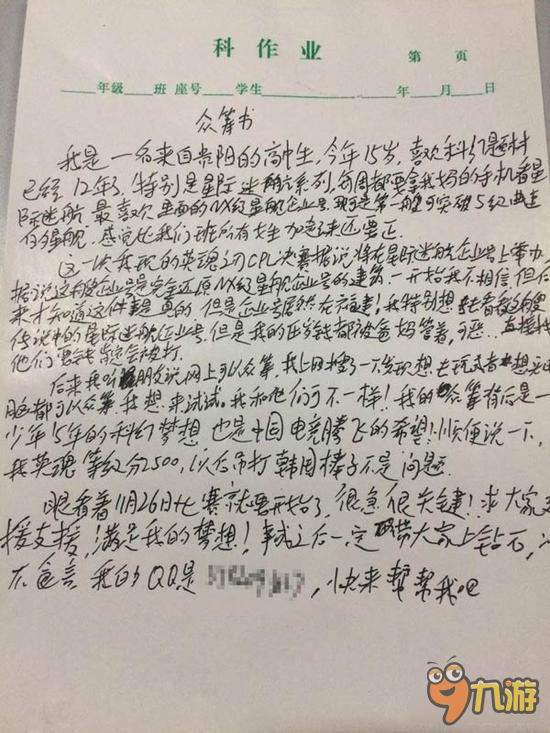 科作业
第 页
年级 班 座号 学生 年 月 日
众筹书
我是一名来自贵阳的高中生,今年15岁,喜欢科幻题材
已经12年了,特别是星际迷航系列,每周都要拿我妈的手机看星
际迷航,最喜欢里面的NX级星舰企业号,那可是第一艘可突破5级曲速
的星舰,感觉比我们班所有女生加起来还要正.
这一次我玩的英魂之刃CPL决赛据说将在星际迷航企业号上举办,
据说这艘企业号是完全还原NX级星舰企业号的建筑,一开始我不相信,但后
来才知道这件事是真的,但是企业号居然在福建!我特别想去看看这艘
传说中的星际迷航企业号,但是我的压岁钱都被爸妈管着,可恶...直接找
他们要钱会被打.
后来我听朋友说网上可以众筹,我上网搜了一下发现想去玩或者想
都可以众筹,我想来试试,我和他们可不一样!我的众筹背后是一
少年15年的科幻梦想,也是中国电竞腾飞的希望!顺便说一下,
我英魂等级分2500,以后吊打韩国棒子不是问题.
眼看着11月26日比赛就要开始了,很急很关键!求大家支
援支援,满足我的梦想!事成之后一定带大家上钻石,决
不食言,我的QQ是 ,快来帮帮我吧
9九游